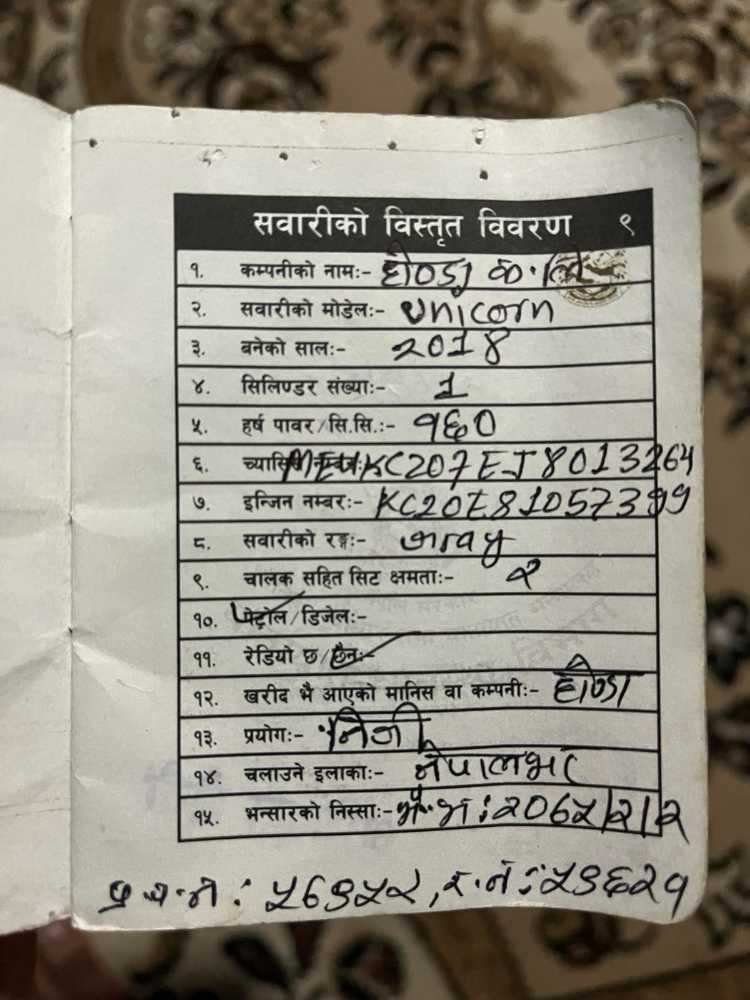 सवारीको विस्तृत विवरण ९
१. कम्पनीको नामः- होण्डा क.लि
२. सवारीको मोडेलः- Unicorn
३. बनेको सालः- 2018
४. सिलिण्डर संख्याः- 1
५. हर्ष पावर/सि.सि.:- १६०
६. च्यासिस नम्बरः- ME4KC207EJ8013264
७. इन्जिन नम्बरः- KC20E81057399
८. सवारीको रङ्गः- Gray
९. चालक सहित सिट क्षमताः- २
१०. पेट्रोल/डिजेलः-
११. रेडियो छ/छैनः-
१२. खरीद भै आएको मानिस वा कम्पनीः- होण्डा
१३. प्रयोगः- निजी
१४. चलाउने इलाकाः- नेपालभर
१५. भन्सारको निस्साः-